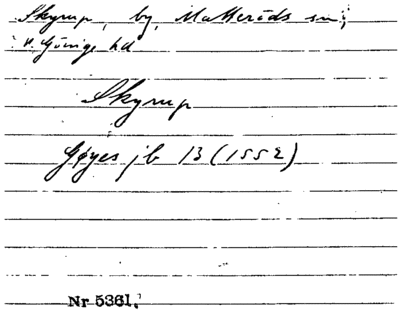 Skyrup, by, Matteröds sn,
V. Göinge hd
Skyrup
Gøyes jb 13 (1552)
Nr 5361.